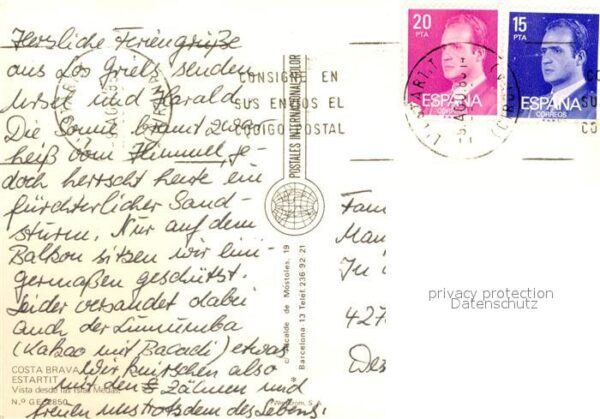 Herzliche Feriengrüße
aus Los Griells senden
Ursel und Harald.
Die Sonne brennt zwar
heiß vom Himmel, je-
doch herrscht heute ein
fürchterlicher Sand-
sturm. Nur auf dem
Balkon sitzen wir eini-
germaßen geschützt.
Leider versandet dabei
auch der Lumumba
(Kakao mit Bacadi) etwas
Wir knirschen also
mit den Zähnen und
freuen uns trotzdem des Lebens!
COSTA BRAVA
ESTARTIT
Vista desde las Islas Medas
N.º GE-2850
CONSIGNE EN
SUS ENVIOS EL
CODIGO POSTAL
POSTALES INTERNACIONALES COLOR
Alcalde de Móstoles, 19
Barcelona 13 Telef. 236-92-21
20
PTA
ESPAÑA
CORREOS
15
PTA
ESPAÑA
CORREOS
Fam
Mau
In
427
Des
privacy protection
Datenschutz